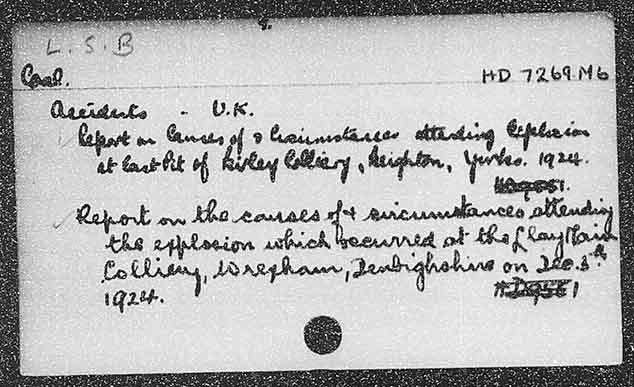 8.
L. S. B
Coal.
HD 7269.M6
Accidents - U.K.
Report on Causes of & Circumstances attending Explosion
at East Pit of Colliery, Yorks. 1924.
Report on the causes of & circumstances attending
the explosion which occurred at the Llay Main
Colliery, Wrexham, Denbighshire on Dec. 5th
1924.